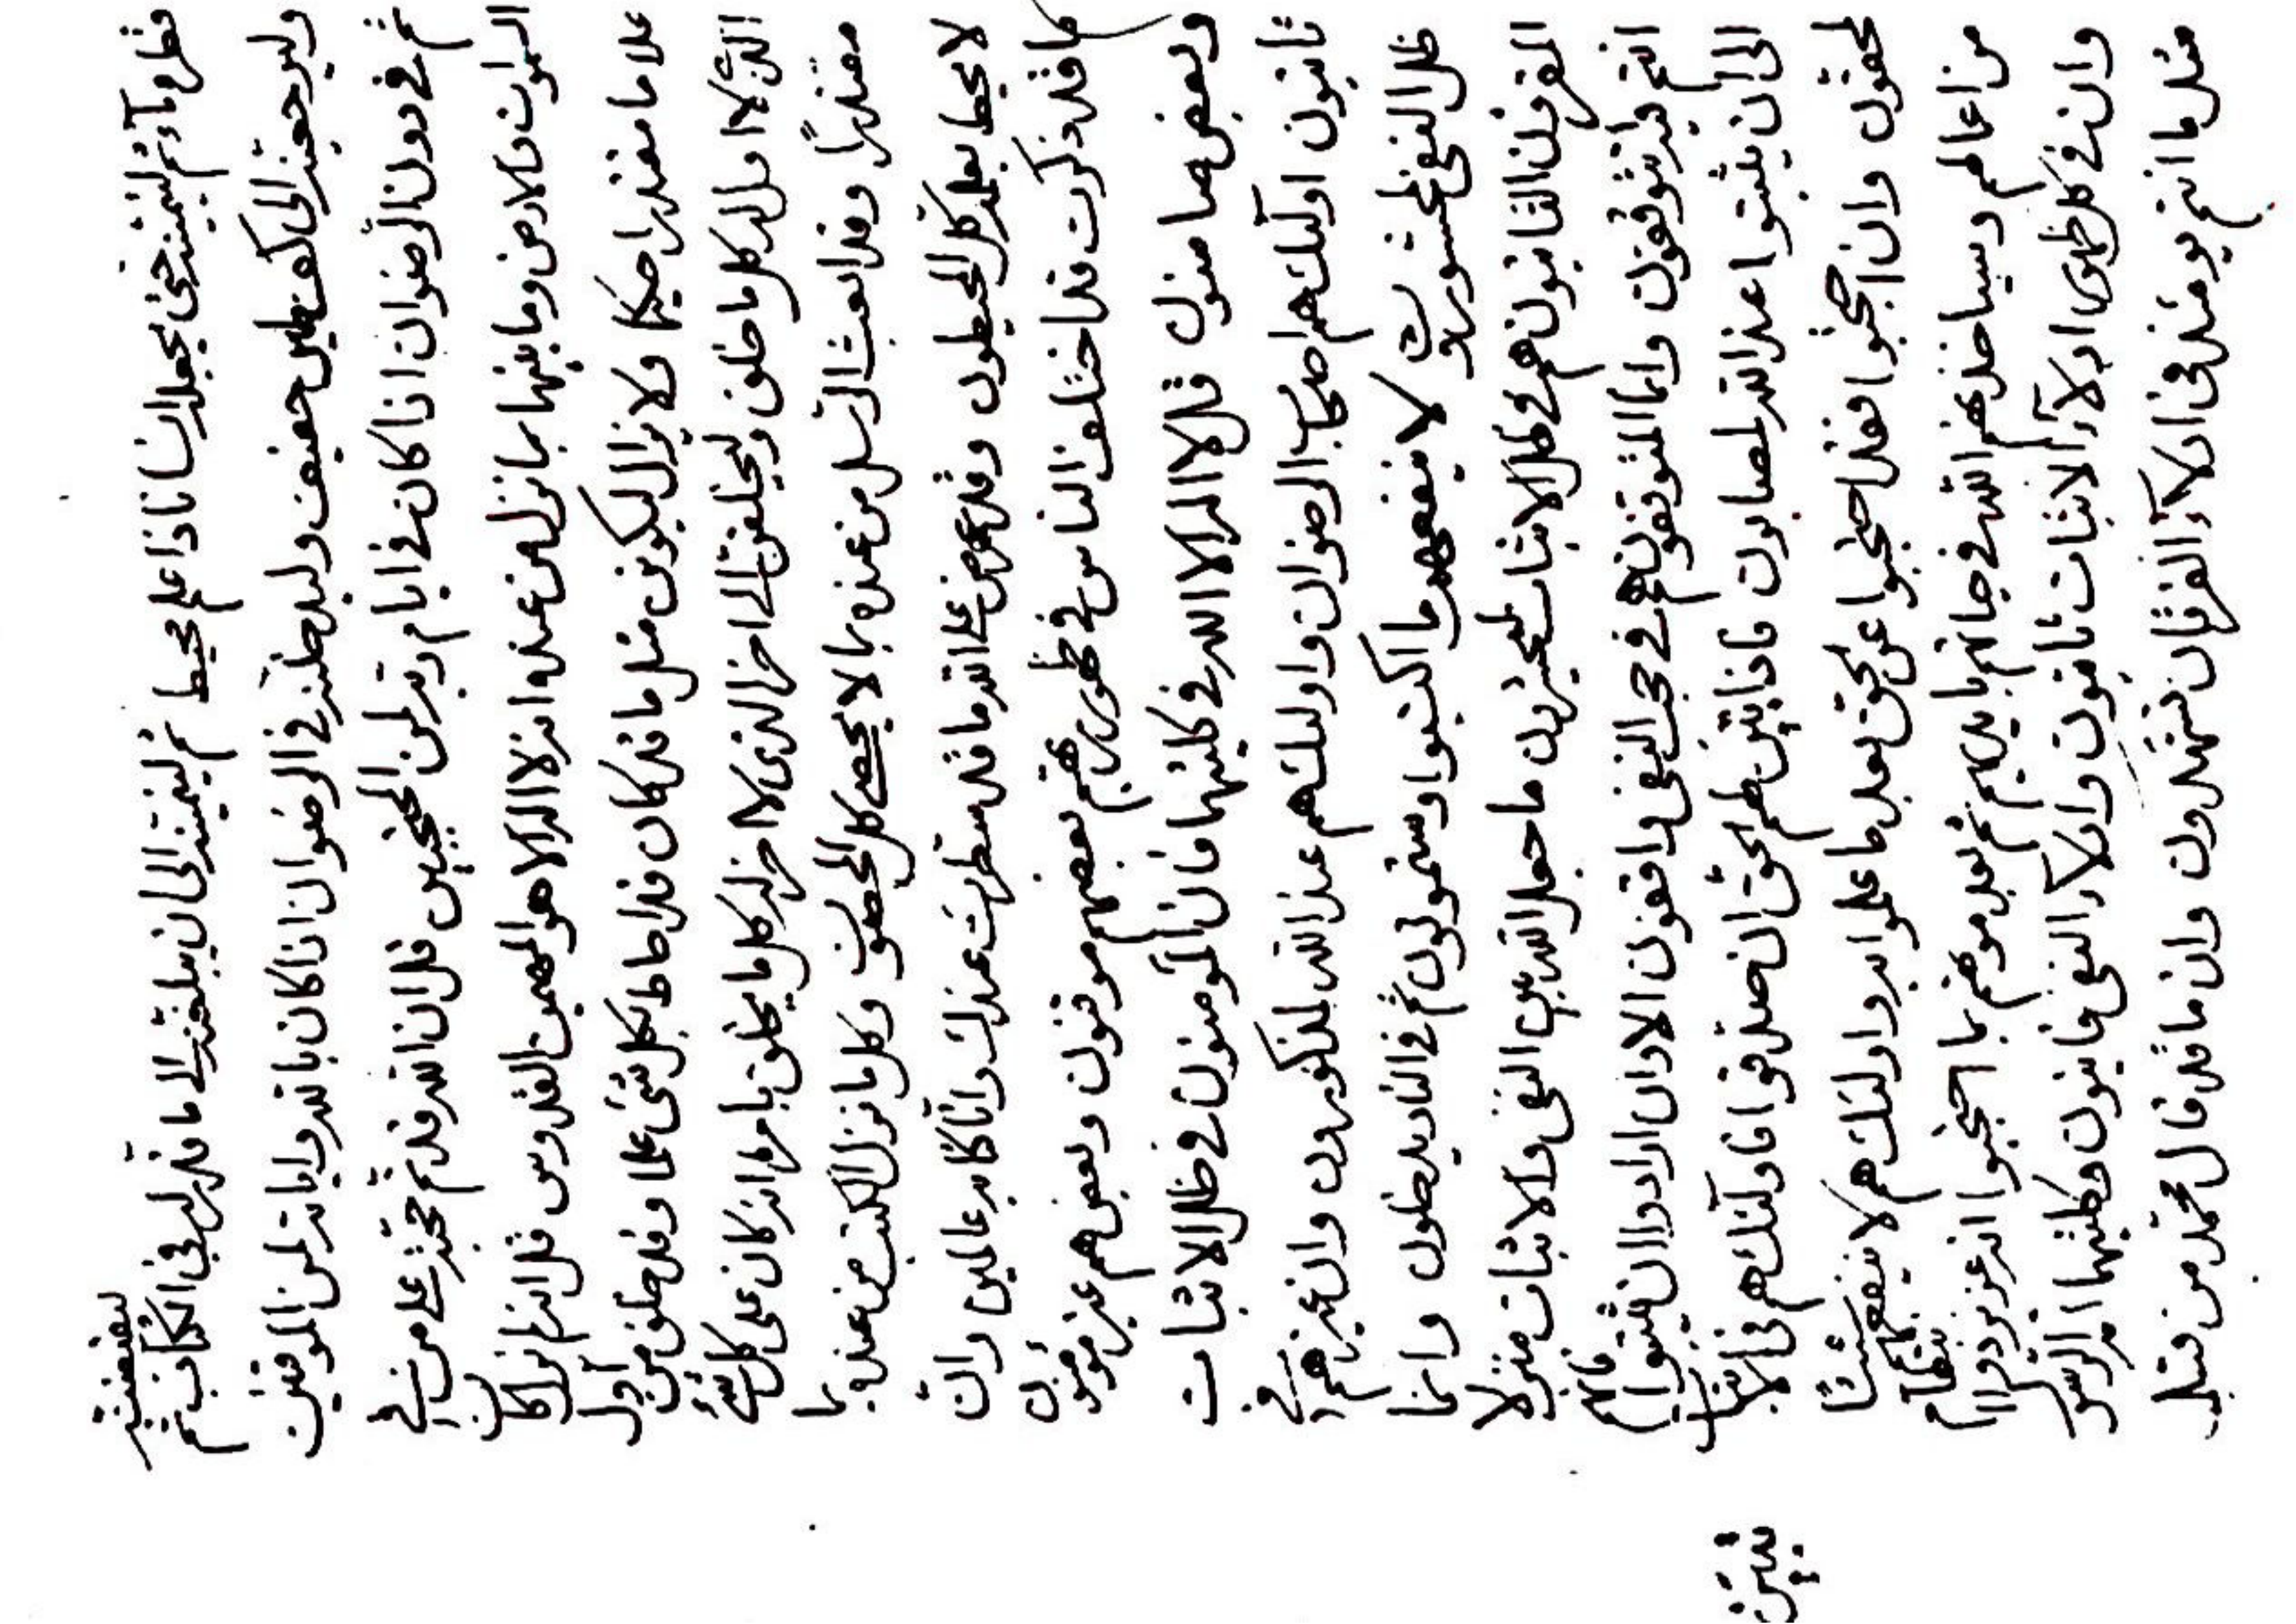 قطرة مآء ثم لينمينه حتى يجعله انسانا ذا علم محيط ثم لينمينه الى ان يبلغنه الى ما قدر له في الكتاب ثم ليقبضنه
وليرجعنه الى كف طين خفيف وليدخلنه في الرضوان اذا كان بالله واياته لمن الموقنين
ثم في دون الرضوان اذا كان في ايام ربه لمن المحتجبين قل ان الله قد تم حجته على من في
السموات والارض وما بينهما بما نزل من عنده انه لا اله الا هو المهيمن القدوس قل انه لم يزل كان
علاما مقتدرا حكيما ولا يزال ليكونن مثل ما قد كان قد احاط بكل شئ علما وقد خلق من اول
الذي لا اول له كل ما خلق وليخلقن الى اخر الذي لا اخر له كل ما يخلق بامره انه كان على كل شئ
مقتدرًا وقد ابعث الرسل من عنده بما لا يحصى كل المحصون وكل ما نزل الكتب من عنده بما
لا يحيط بعلمه كل المحيطون وقد عرض على الله ما قد سطرت عندك وانا كنا به عالمين وان
ما قد ذكرت قد اختلف الناس في ظهور ربهم بعضهم موقنون وبعض هم غير مؤمنون
وبعض قل لا اله الا الله في كلتيهما فان المؤمنون في ظل الاثبات
اولئك هم اصحاب الرضوان واولئك هم عند الله لمذكورون وان غيرهم في
ظل النفي لمحشورون لا ينفعهم ما اكتسبوا ثم في النار يدخلون وانما
هم في ظل الاثبات ما جعل الله بين النفي والاثبات منزلا
انتم فيه تتوقفون وانما المتوقفون هم في حجب النفي واقفون الا وان ارادوا ان يثبتوا فانهم
الى ان يثبتوا عند الله لصابرون فاذا تبين لهم الحق ان صدقوا فاولئك هم في الاثبات
لحقون وان احتجبوا فقد احتجبوا عن الحق بعد ما علموا به واولئك هم لا ينفعهم شيئا
من اعمالهم وسياخذنهم الله في حياتهم بايديهم ثم بعد موتهم بما احتجبوا انه عزيز ذو انتقام
وان في كل ظهور ادلآء الاثبات وادلآء النفي فانيون وكلتيهما امر الرسول
مثل ما انتم يومئذ في ادلآء الفرقان تشهدون وان ما قد قال محمد من قبل
تبين